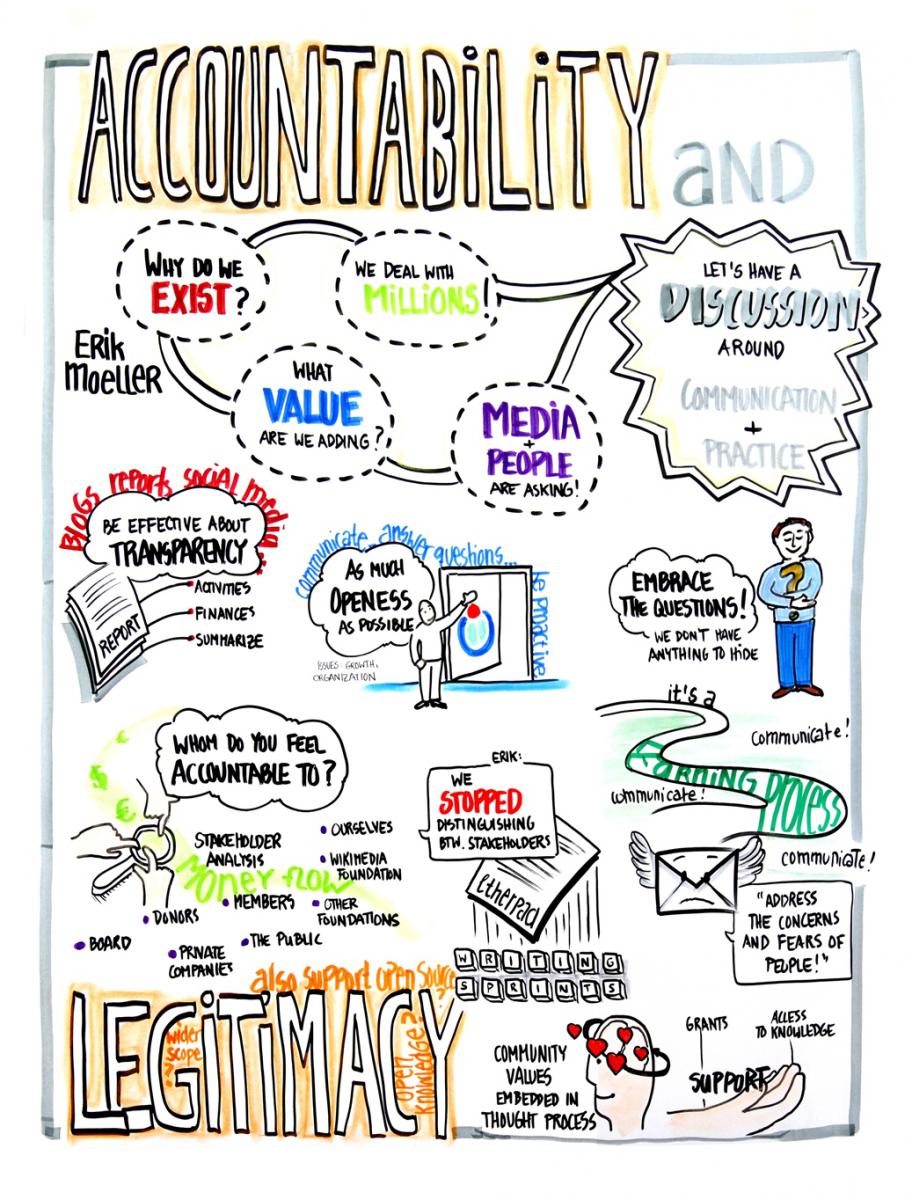 ACCOUNTABILITY
AND
WHY DO WE
EXIST?
WE DEAL WITH
MILLIONS!
LET'S HAVE A
DISCUSSION
AROUND
COMMUNICATION
+
PRACTICE
ERIK
MOELLER
WHAT
VALUE
ARE WE ADDING?
MEDIA
+
PEOPLE
ARE ASKING!
BLOGS reports social media...
BE EFFECTIVE ABOUT
TRANSPARENCY
REPORT
ACTIVITIES
FINANCES
SUMMARIZE
communicate...answer questions...
be proactive
AS MUCH
OPENESS
AS POSSIBLE
ISSUES: GROWTH,
ORGANIZATION
EMBRACE
THE QUESTIONS!
WE DON'T HAVE
ANYTHING TO HIDE
?
it's a
LEARNING PROCESS
communicate!
communicate!
communicate!
WHOM DO YOU FEEL
ACCOUNTABLE TO?
€
€
€
STAKEHOLDER
ANALYSIS
MONEY FLOW
• OURSELVES
• WIKIMEDIA
FOUNDATION
• MEMBERS
• OTHER
FOUNDATIONS
• DONORS
• BOARD
• PRIVATE
COMPANIES
• THE PUBLIC
ERIK:
WE
STOPPED
DISTINGUISHING
BTW. STAKEHOLDERS
Etherpad
WRITING
SPRINTS
"ADDRESS
THE CONCERNS
AND FEARS OF
PEOPLE!"
also support open source
?
LEGITIMACY
wider
scope
?
open
knowledge?
COMMUNITY
VALUES
EMBEDDED IN
THOUGHT PROCESS
GRANTS
ACCESS
TO KNOWLEDGE
SUPPORT